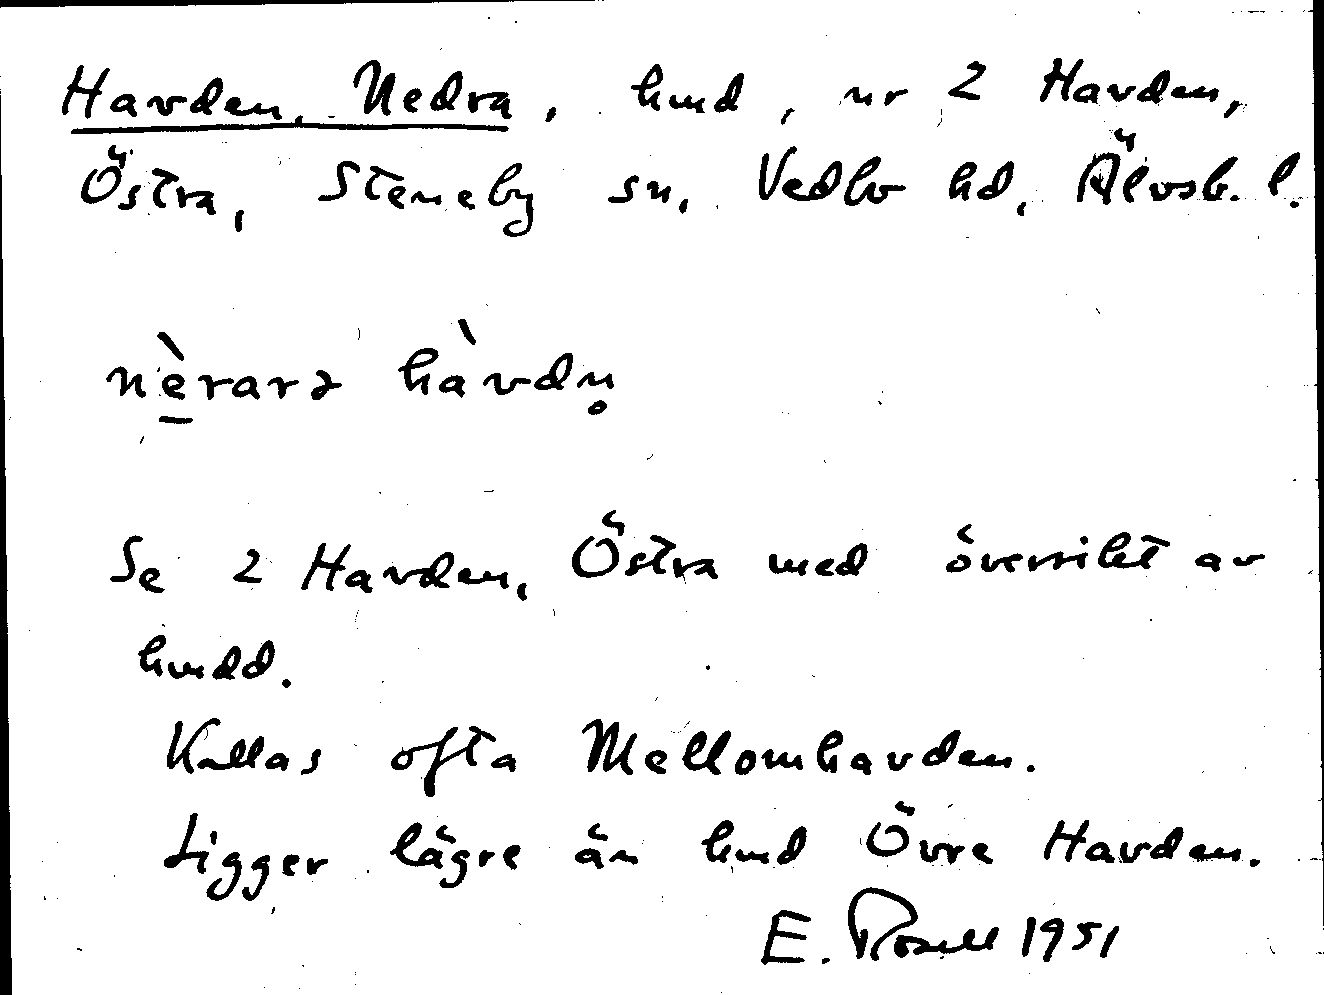 Havden, Nedra, hmd, nr 2 Havden,
Östra, Steneby sn, Vedbo hd, Älvsb. l.
nè̠rarə hàvdn̥
Se 2 Havden, Östra med översikt av
hmdd.
Kallas ofta Mellomhavden.
Ligger lägre än hmd Övre Havden.
E. Rosell 1951